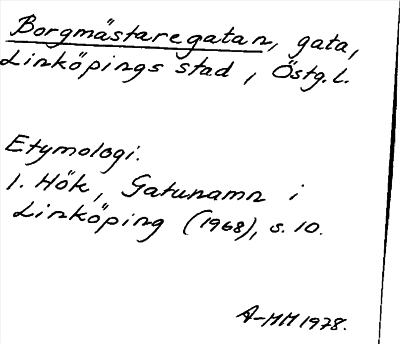 Borgmästaregatan, gata,
Linköpings stad, Östg. l.
Etymologi.
I. Hök, Gatunamn i
Linköping (1968), s. 10.
A-MM 1978.